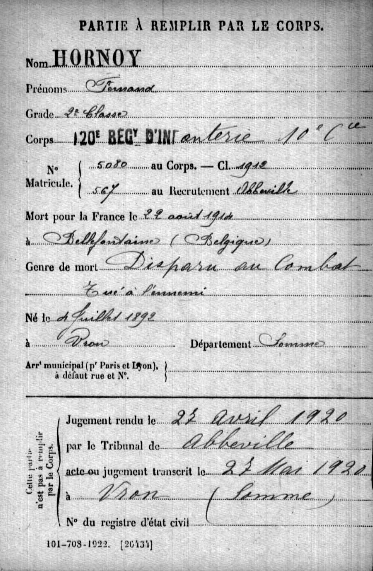 PARTIE À REMPLIR PAR LE CORPS.
Nom HORNOY
Prénoms Fernand
Grade 2e Classe
Corps 120E REGt D'INFanterie 10e Cie
Nº Matricule. 5080 au Corps. — Cl. 1912
567 au Recrutement Abbeville
Mort pour la France le 22 août 1914
à Bellefontaine (Belgique)
Genre de mort Disparu au Combat
Tué à l'ennemi
Né le 4 Juillet 1892
à Vron Département Somme
Arrt municipal (pr Paris et Lyon),
à défaut rue et Nº.
Cette partie
n'est pas à remplir
par le Corps.
Jugement rendu le 27 avril 1920
par le Tribunal de Abbeville
acte ou jugement transcrit le 27 Mai 1920
à Vron (Somme)
Nº du registre d'état civil
101-708-1922. [26434]